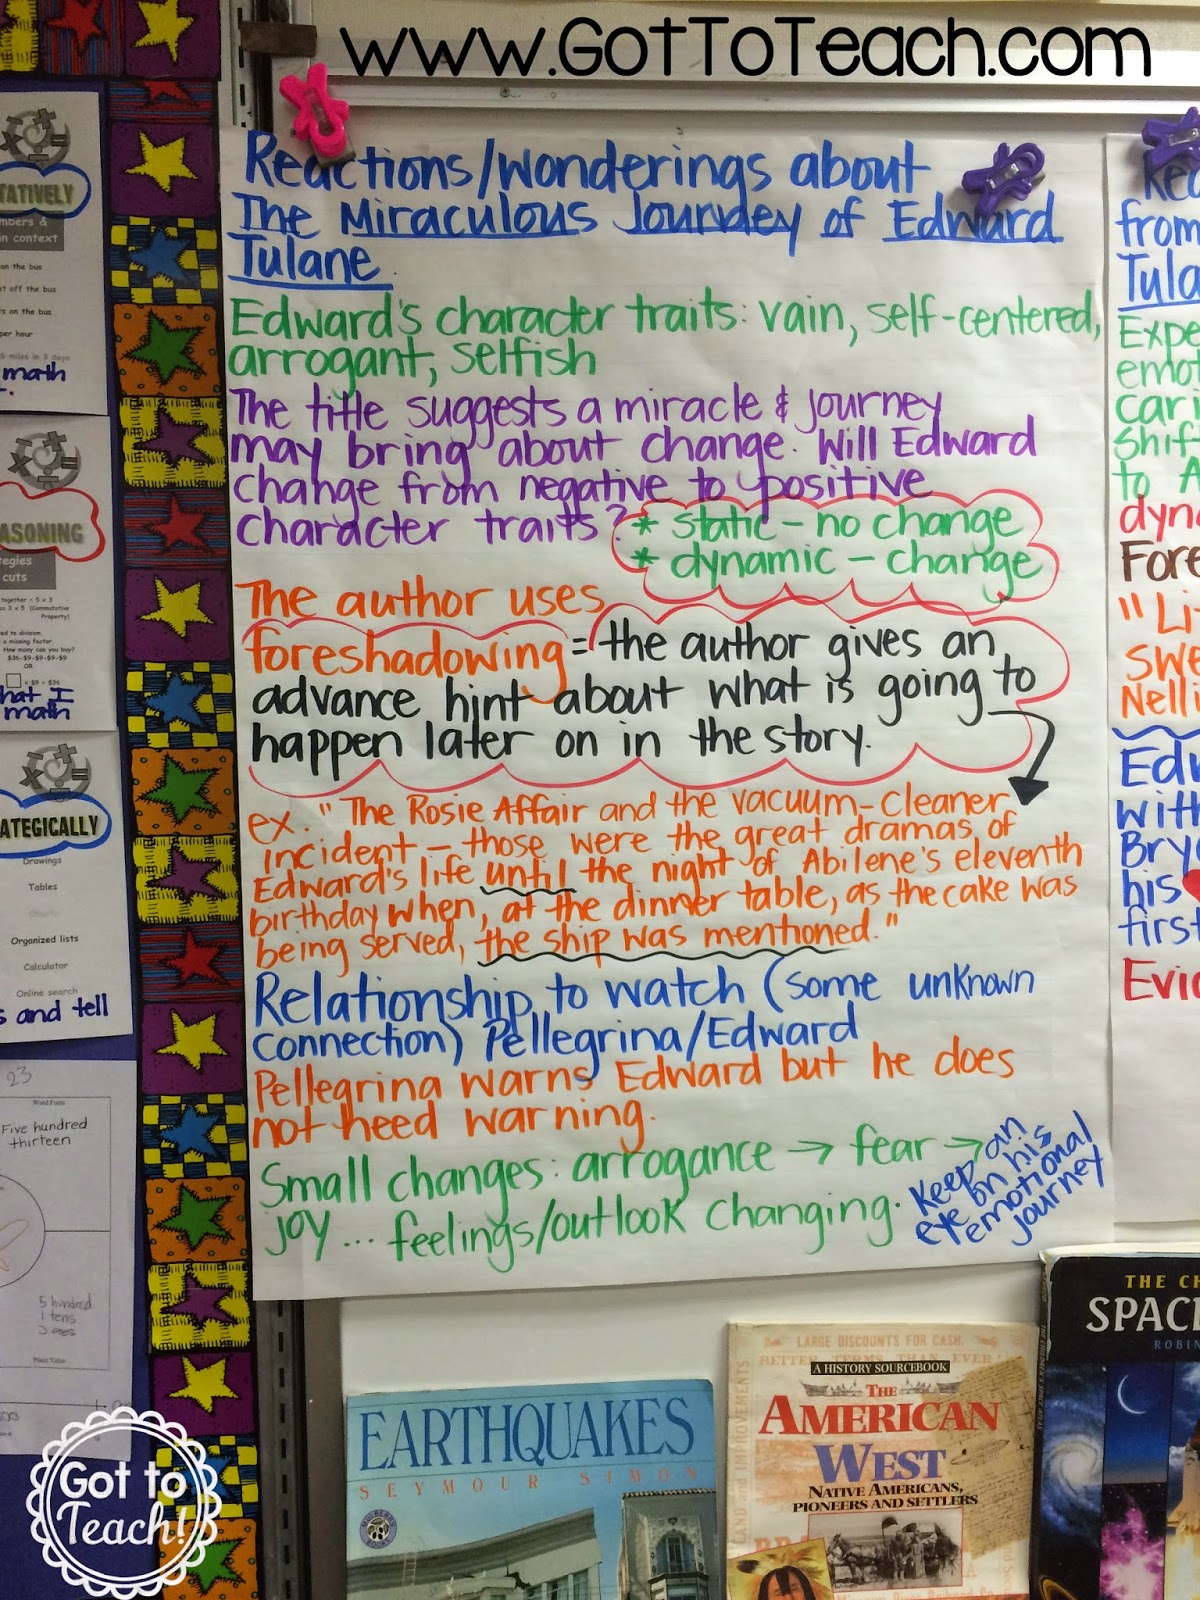 www.GotToTeach.com
Reactions/Wonderings about
The Miraculous Journey of Edward
Tulane
Edward's character traits: vain, self-centered,
arrogant, selfish
The title suggests a miracle & journey
may bring about change. Will Edward
change from negative to positive
character traits?
* static - no change
* dynamic - change
The author uses
foreshadowing = the author gives an
advance hint about what is going to
happen later on in the story.
ex. "The Rosie Affair and the vacuum-cleaner
incident - those were the great dramas of
Edward's life until the night of Abilene's eleventh
birthday when, at the dinner table, as the cake was
being served, the ship was mentioned."
Relationship to watch (some unknown
connection) Pellegrina/Edward
Pellegrina warns Edward but he does
not heed warning.
Small changes: arrogance → fear →
joy... feelings/outlook changing.
keep an
eye on his
emotional
journey
from
Tula
Expe
emot
cari
shif
to A
dyna
Fore
"Li
swe
Nelli
Edw
with
Bry
his
first
Evid
TATIVELY
in context
on the bus
off the bus
on the bus
per hour
6 miles in 3 days
math
EASONING
tegies
cuts
Property)
a missing factor.
How many can you buy?
$36-$9-$9-$9-$9
OR
x $9 = $36
what I
math
ATEGICALLY
Drawings
Tables
Charts
Organized lists
Calculator
Online search
s and tell
23
Word Form
Five hundred
thirteen
5 hundred
1 tens
3 ones
Place Value
Got to
Teach!
EARTHQUAKES
SEYMOUR SIMON
LARGE DISCOUNTS FOR CASH.
BETTER TERMS THAN EVER
A HISTORY SOURCEBOOK
THE
AMERICAN
WEST
NATIVE AMERICANS,
PIONEERS AND SETTLERS
THE CH
SPAC
ROBIN